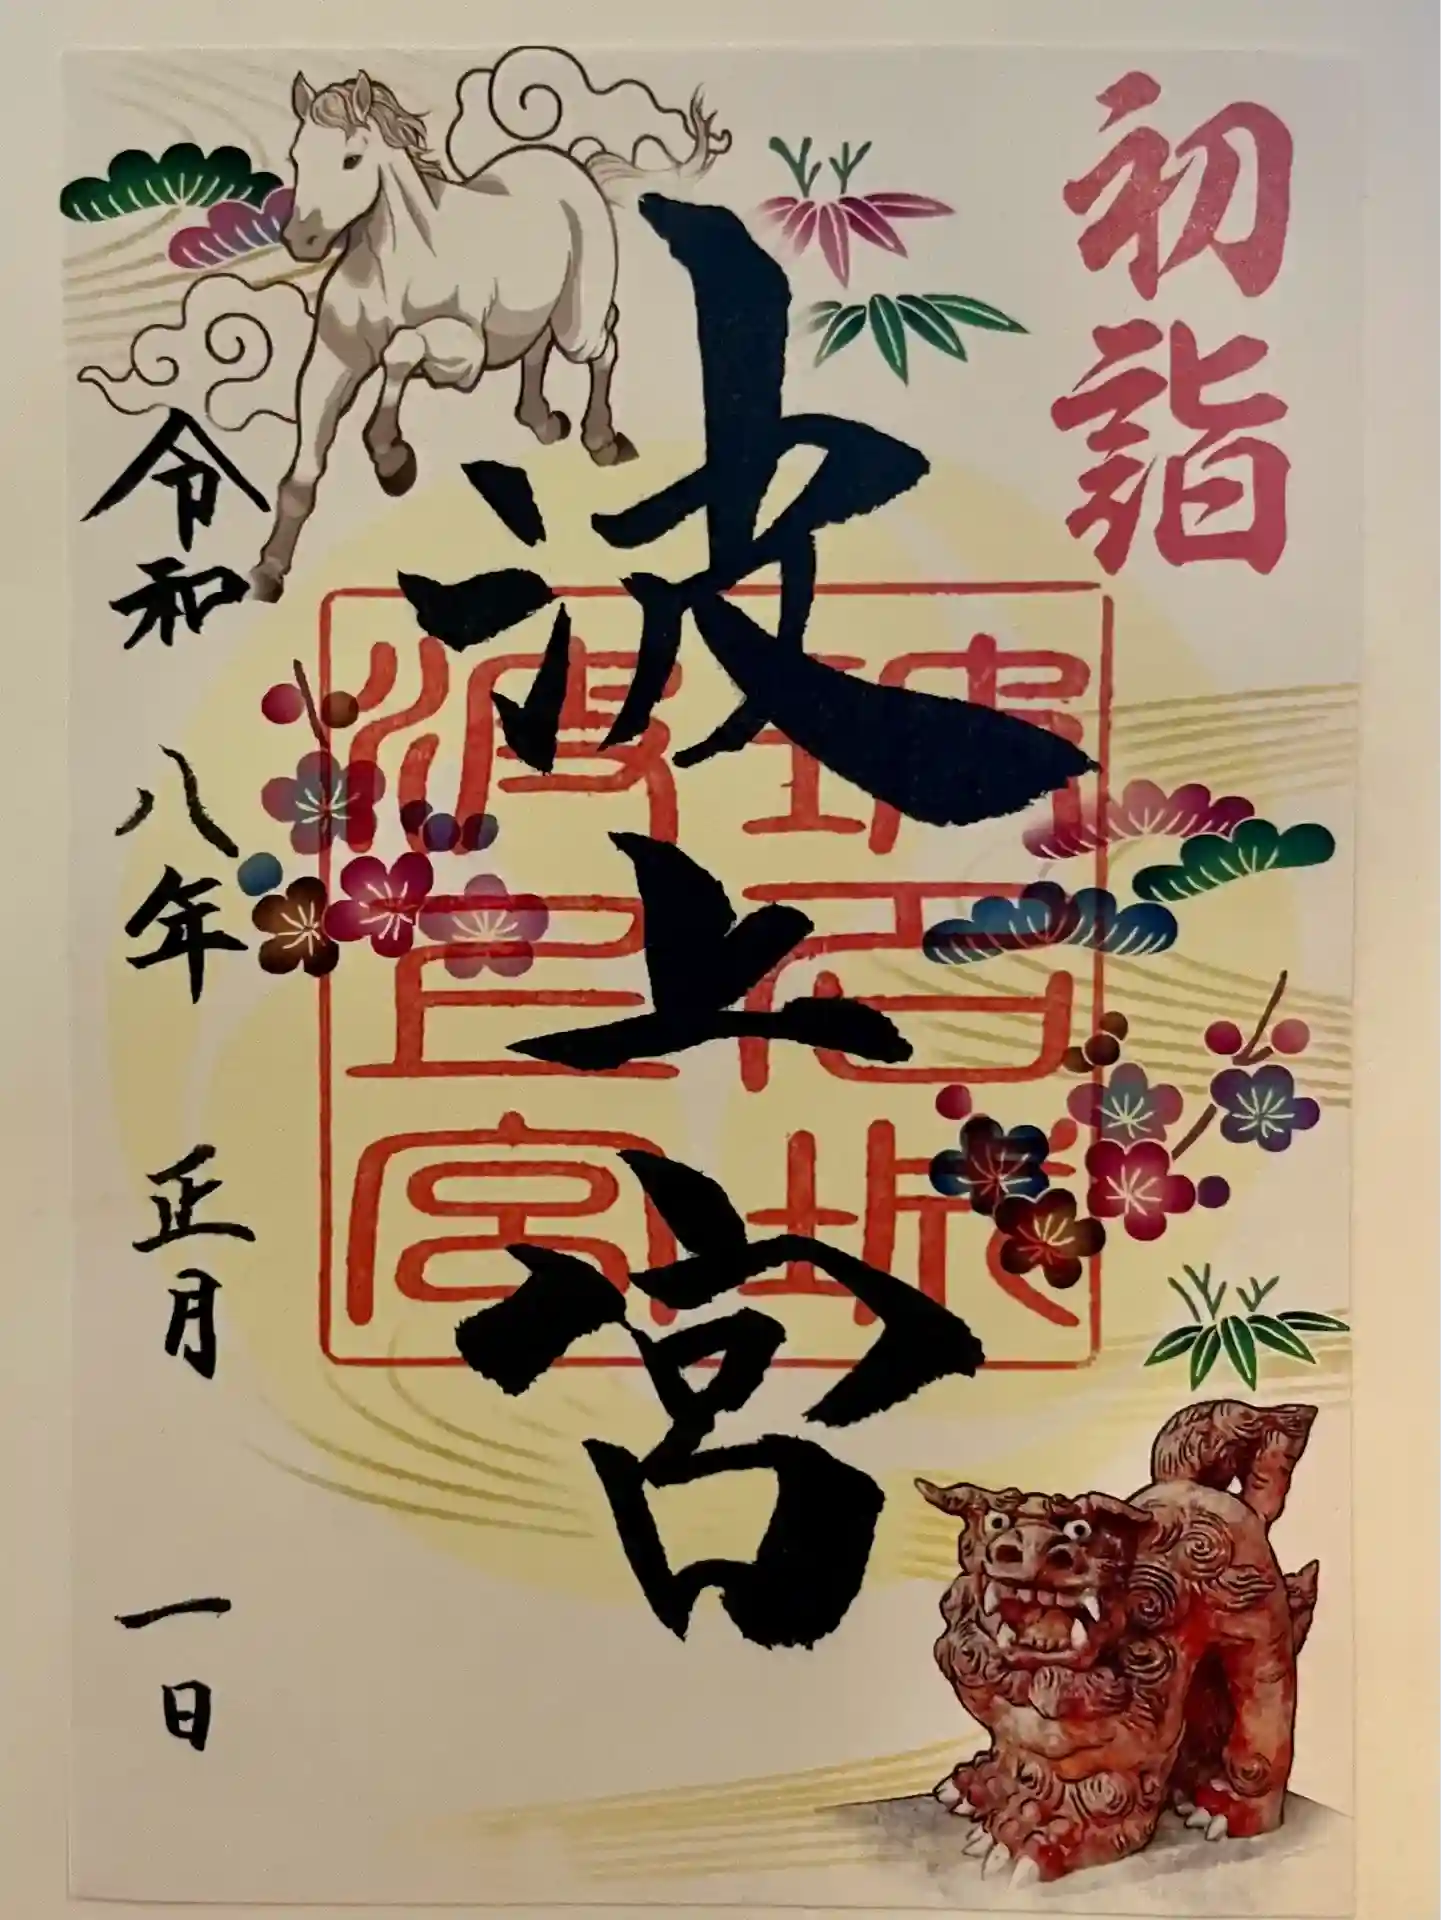 初詣
波上宮
琉石城
波上宮
令和八年正月一日